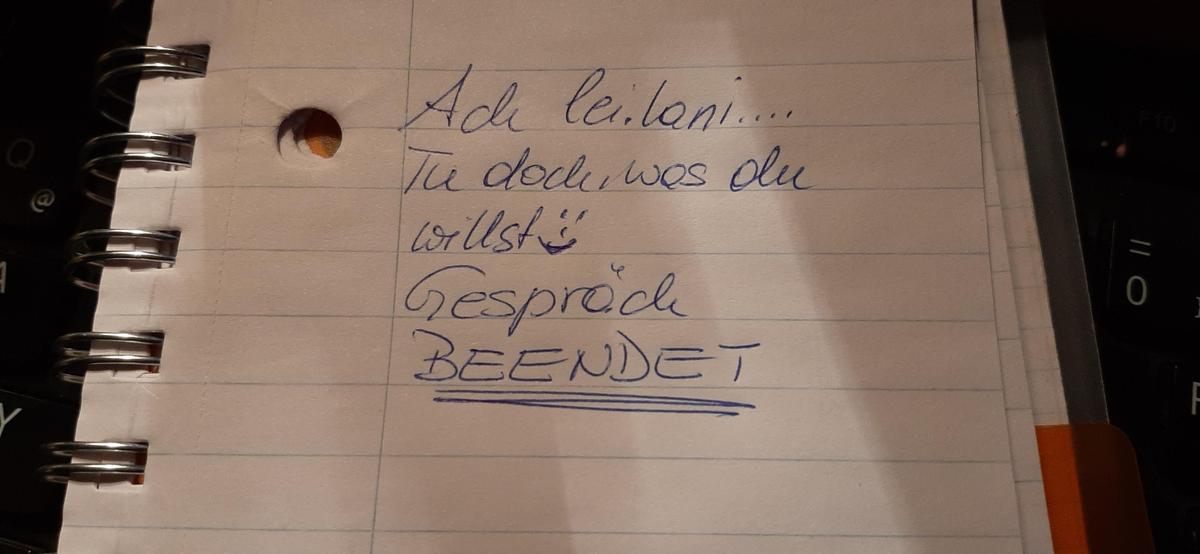 Ach leilani....
Tu doch, was du
willst
Gespräch
BEENDET
Q
@
A
Y
F10
=
0